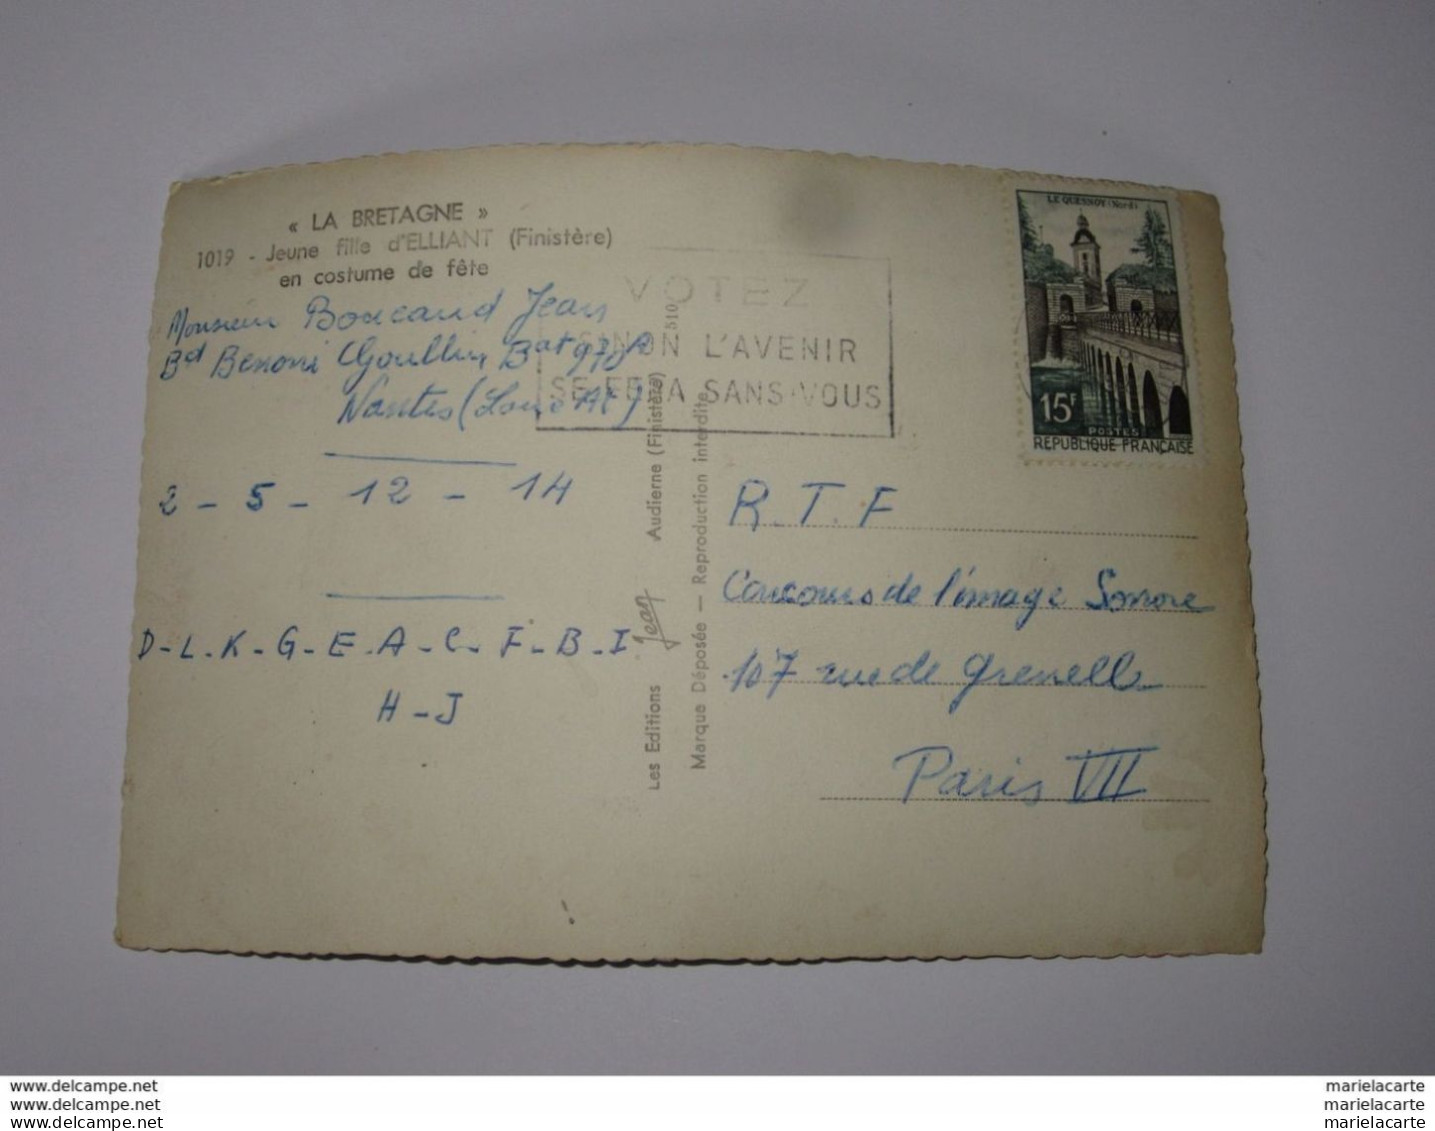 « LA BRETAGNE »
1019 - Jeune fille d'ELLIANT (Finistère)
en costume de fête
Monsieur Boucaud Jean
Bd Benoni Goullin Bat
Nantes (Loire At)
2 - 5 - 12 - 14
D-L-K-G-E-A-C-F-B-I
H-J
VOTEZ
SINON L'AVENIR
SE FERA SANS VOUS
510
Les Editions Jean Audierne (Finistère)
Marque Déposée — Reproduction interdite
LE QUESNOY (Nord)
15F
POSTES
REPUBLIQUE FRANÇAISE
R.T.F
Concours de l'image Sonore
107 rue de Grenelle
Paris VII
www.delcampe.net
www.delcampe.net
www.delcampe.net
marielacarte
marielacarte
marielacarte